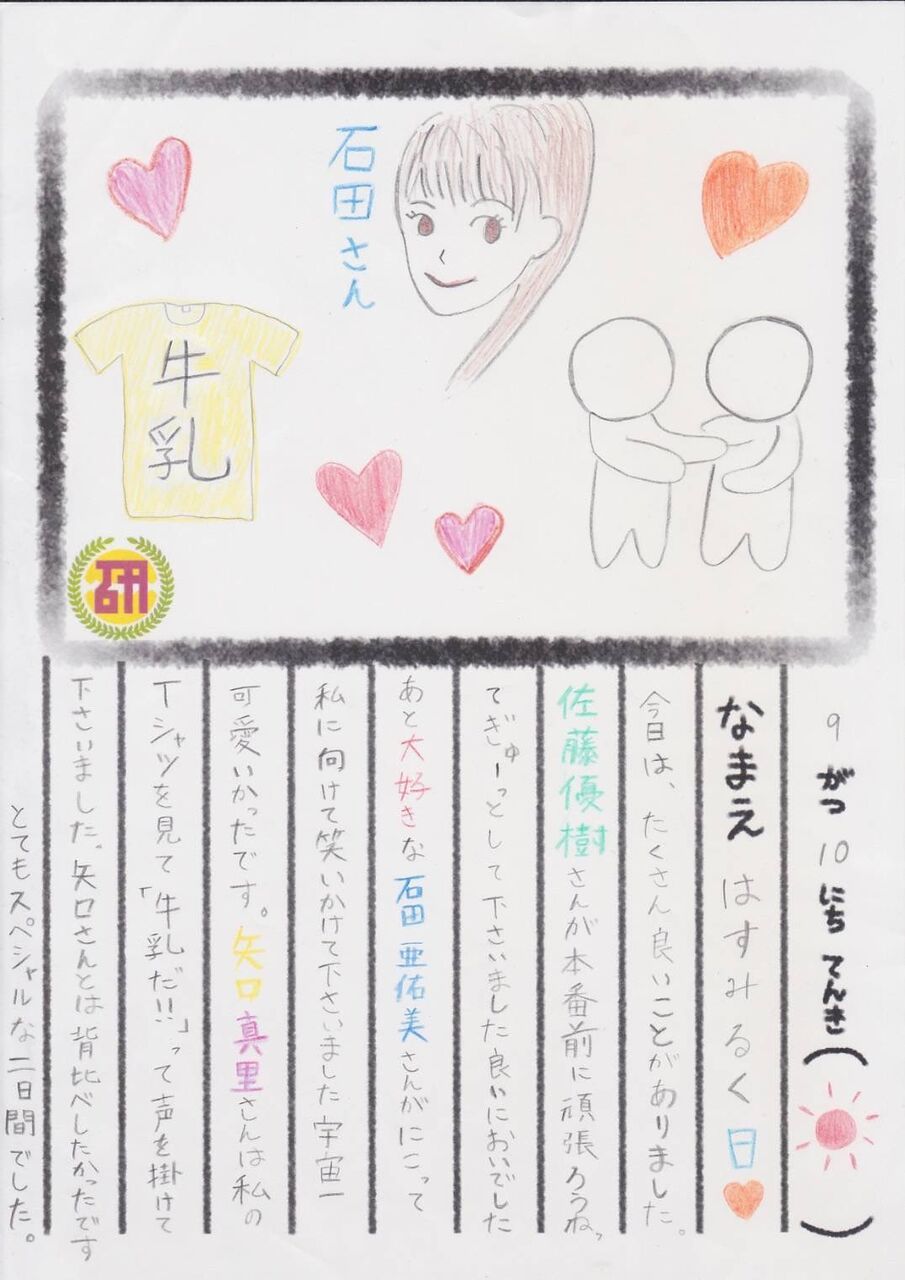 石田さん
牛乳
研
9がつ10にちてんき( )
なまえ はすみるく日
今日は、たくさん良いことがありました。
佐藤優樹さんが本番前に頑張ろうね、
てぎゅーっとして下さいました良いにおいでした
あと大好きな石田亜佑美さんがにこって
私に向けて笑いかけて下さいました宇宙一
可愛いかったです。矢口真里さんは私の
Tシャツを見て「牛乳だ!!」って声を掛けて
下さいました。矢口さんとは背比べしたかったです
とてもスペシャルな二日間でした。